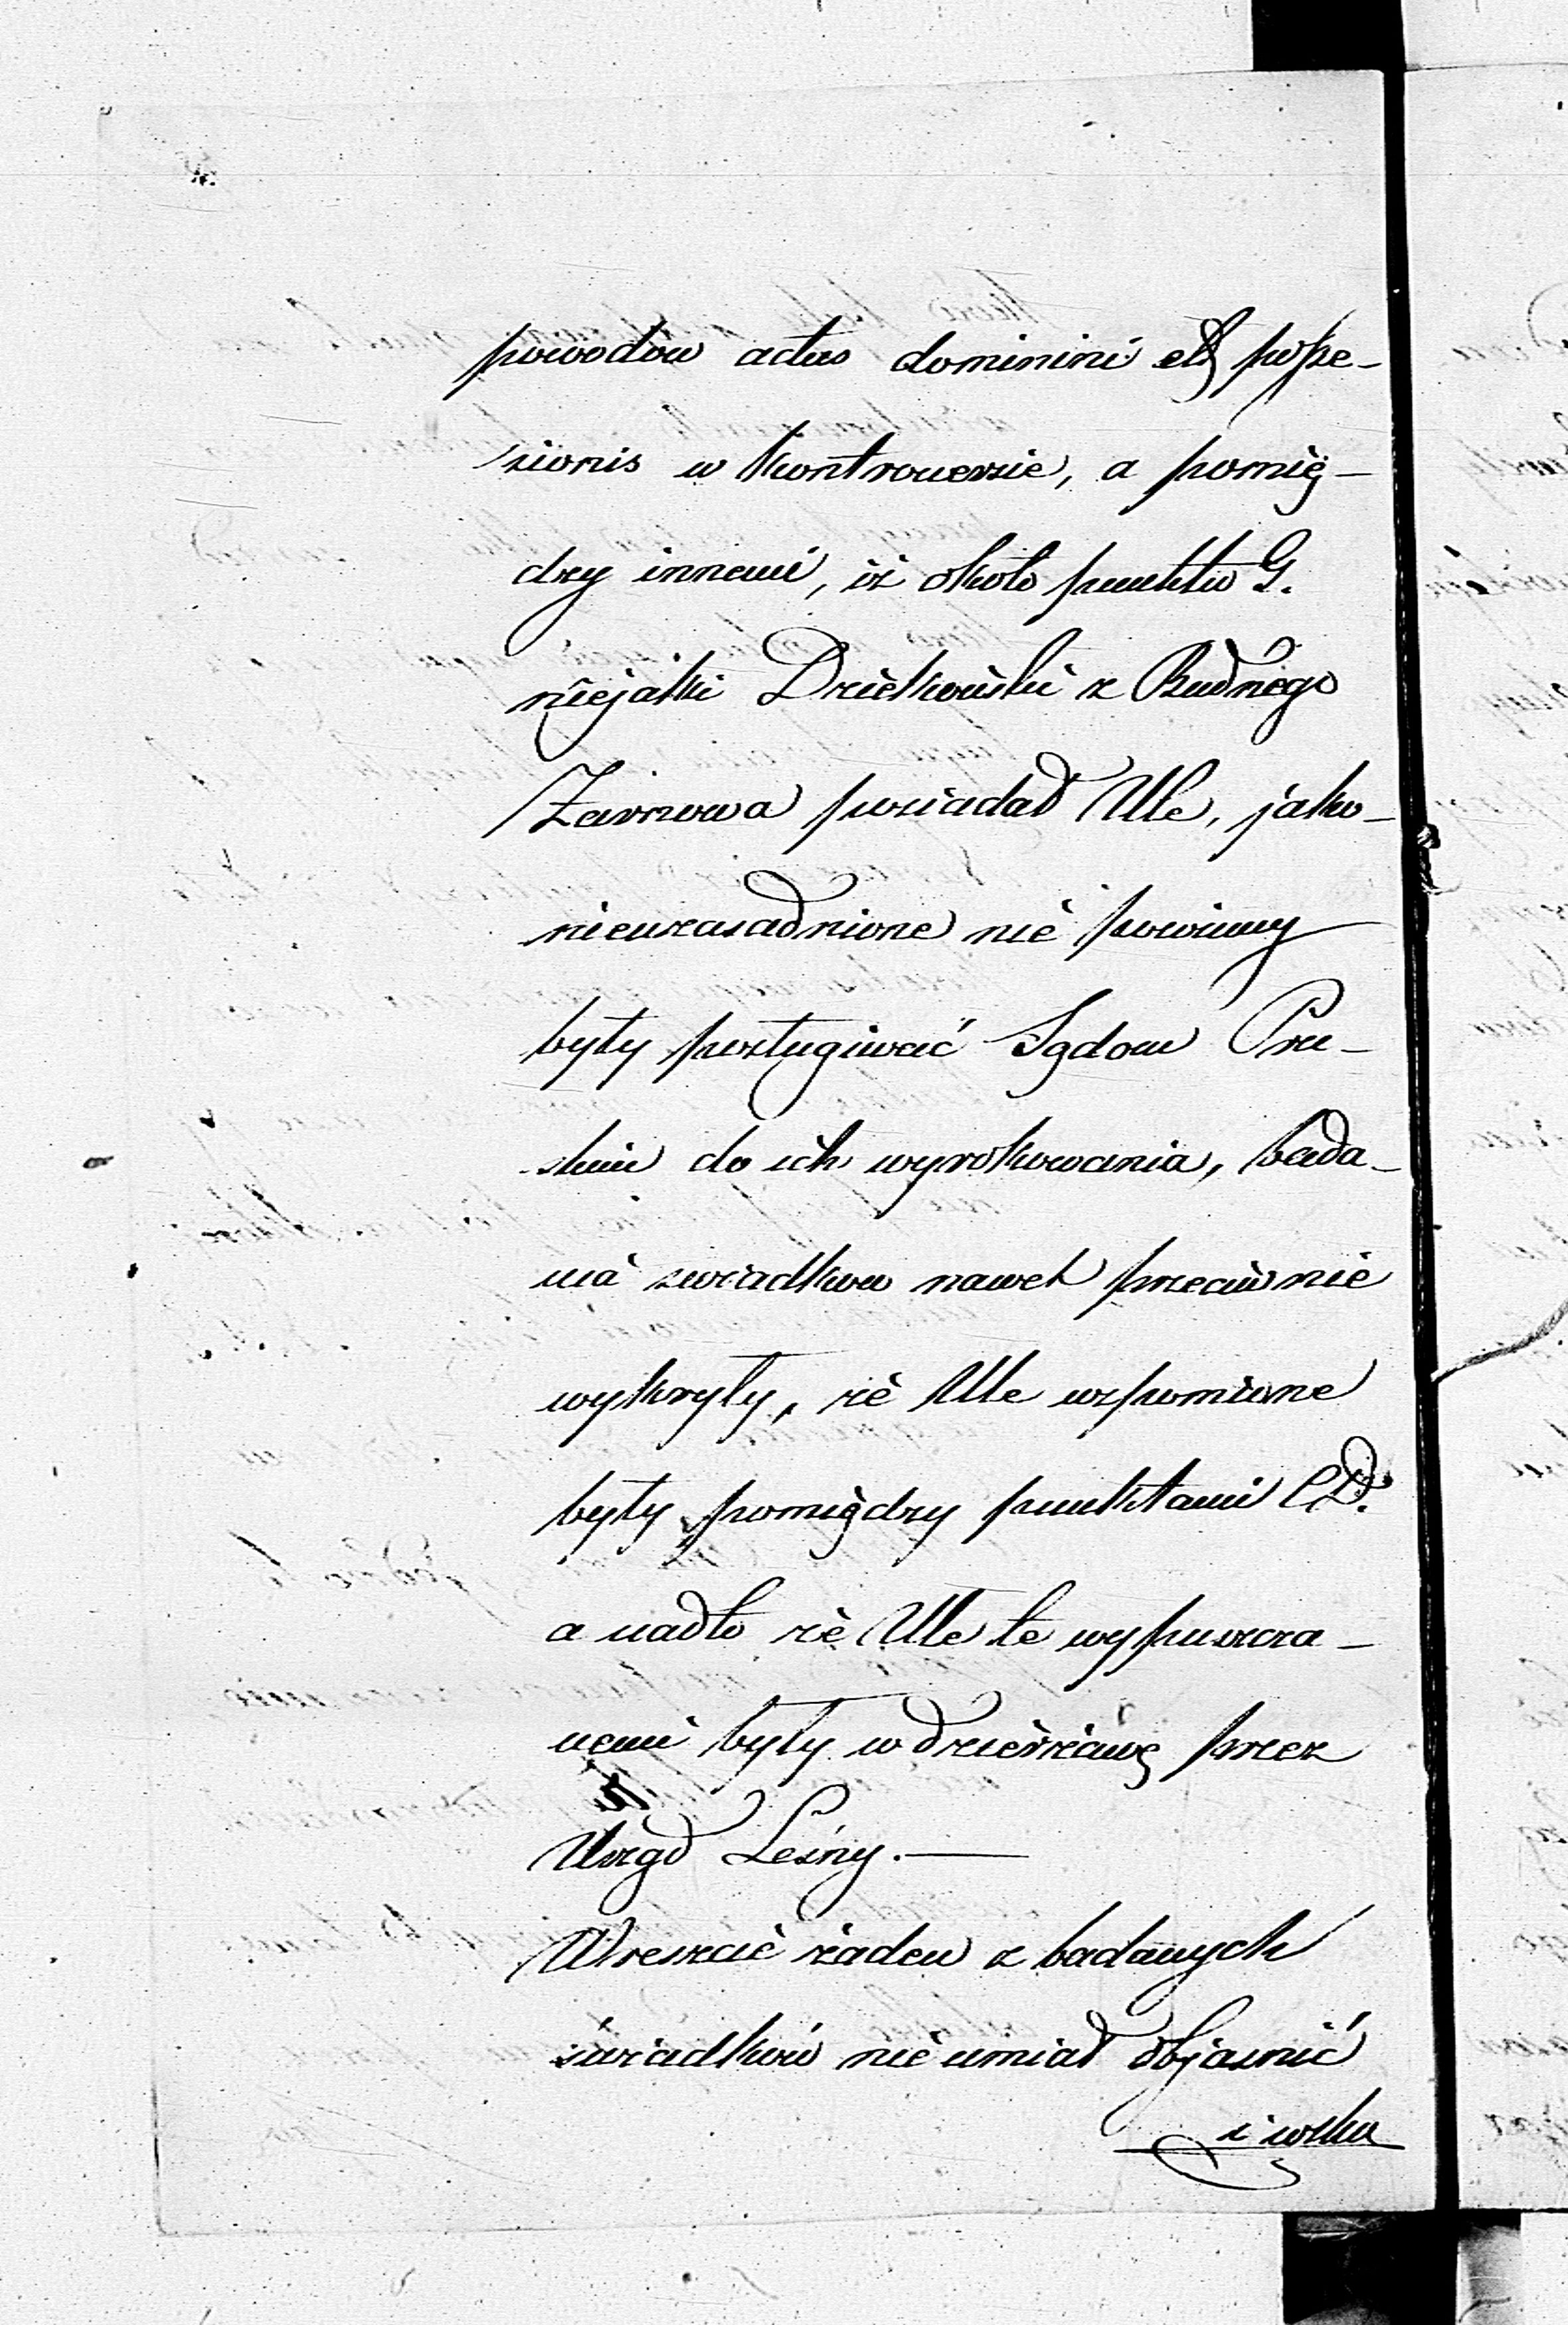 powodów actus dominini et posse-
sionis w kontrowersie, a pomię-
dzy innemi, iż około punktu G.
niejaki Dziekoński z Rudnego
Żarnowa posiadał Ule, jako
nieuzasadnione nie powinny
były posługiwać Sądom Pru-
skim do ich wyrokowania, bada-
nia swiadków nawet przeciwnie
wykryły, że Ule wspomione
były pomiędzy punktami CD.
a nadto że Ule te wypuszcza-
nemi były w dzierżawę przez
Urząd Leśny. —
Wreszcie żaden z badanych
świadków nie umiał objasnić
i wska